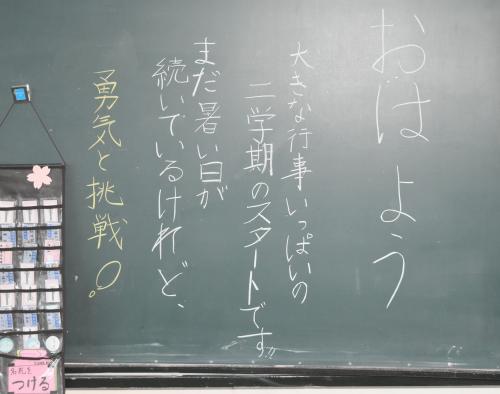 おはよう
大きな行事いっぱいの
二学期のスタートです!!
まだ暑い日が
続いているけれど、
勇気と挑戦!
名札を
つける